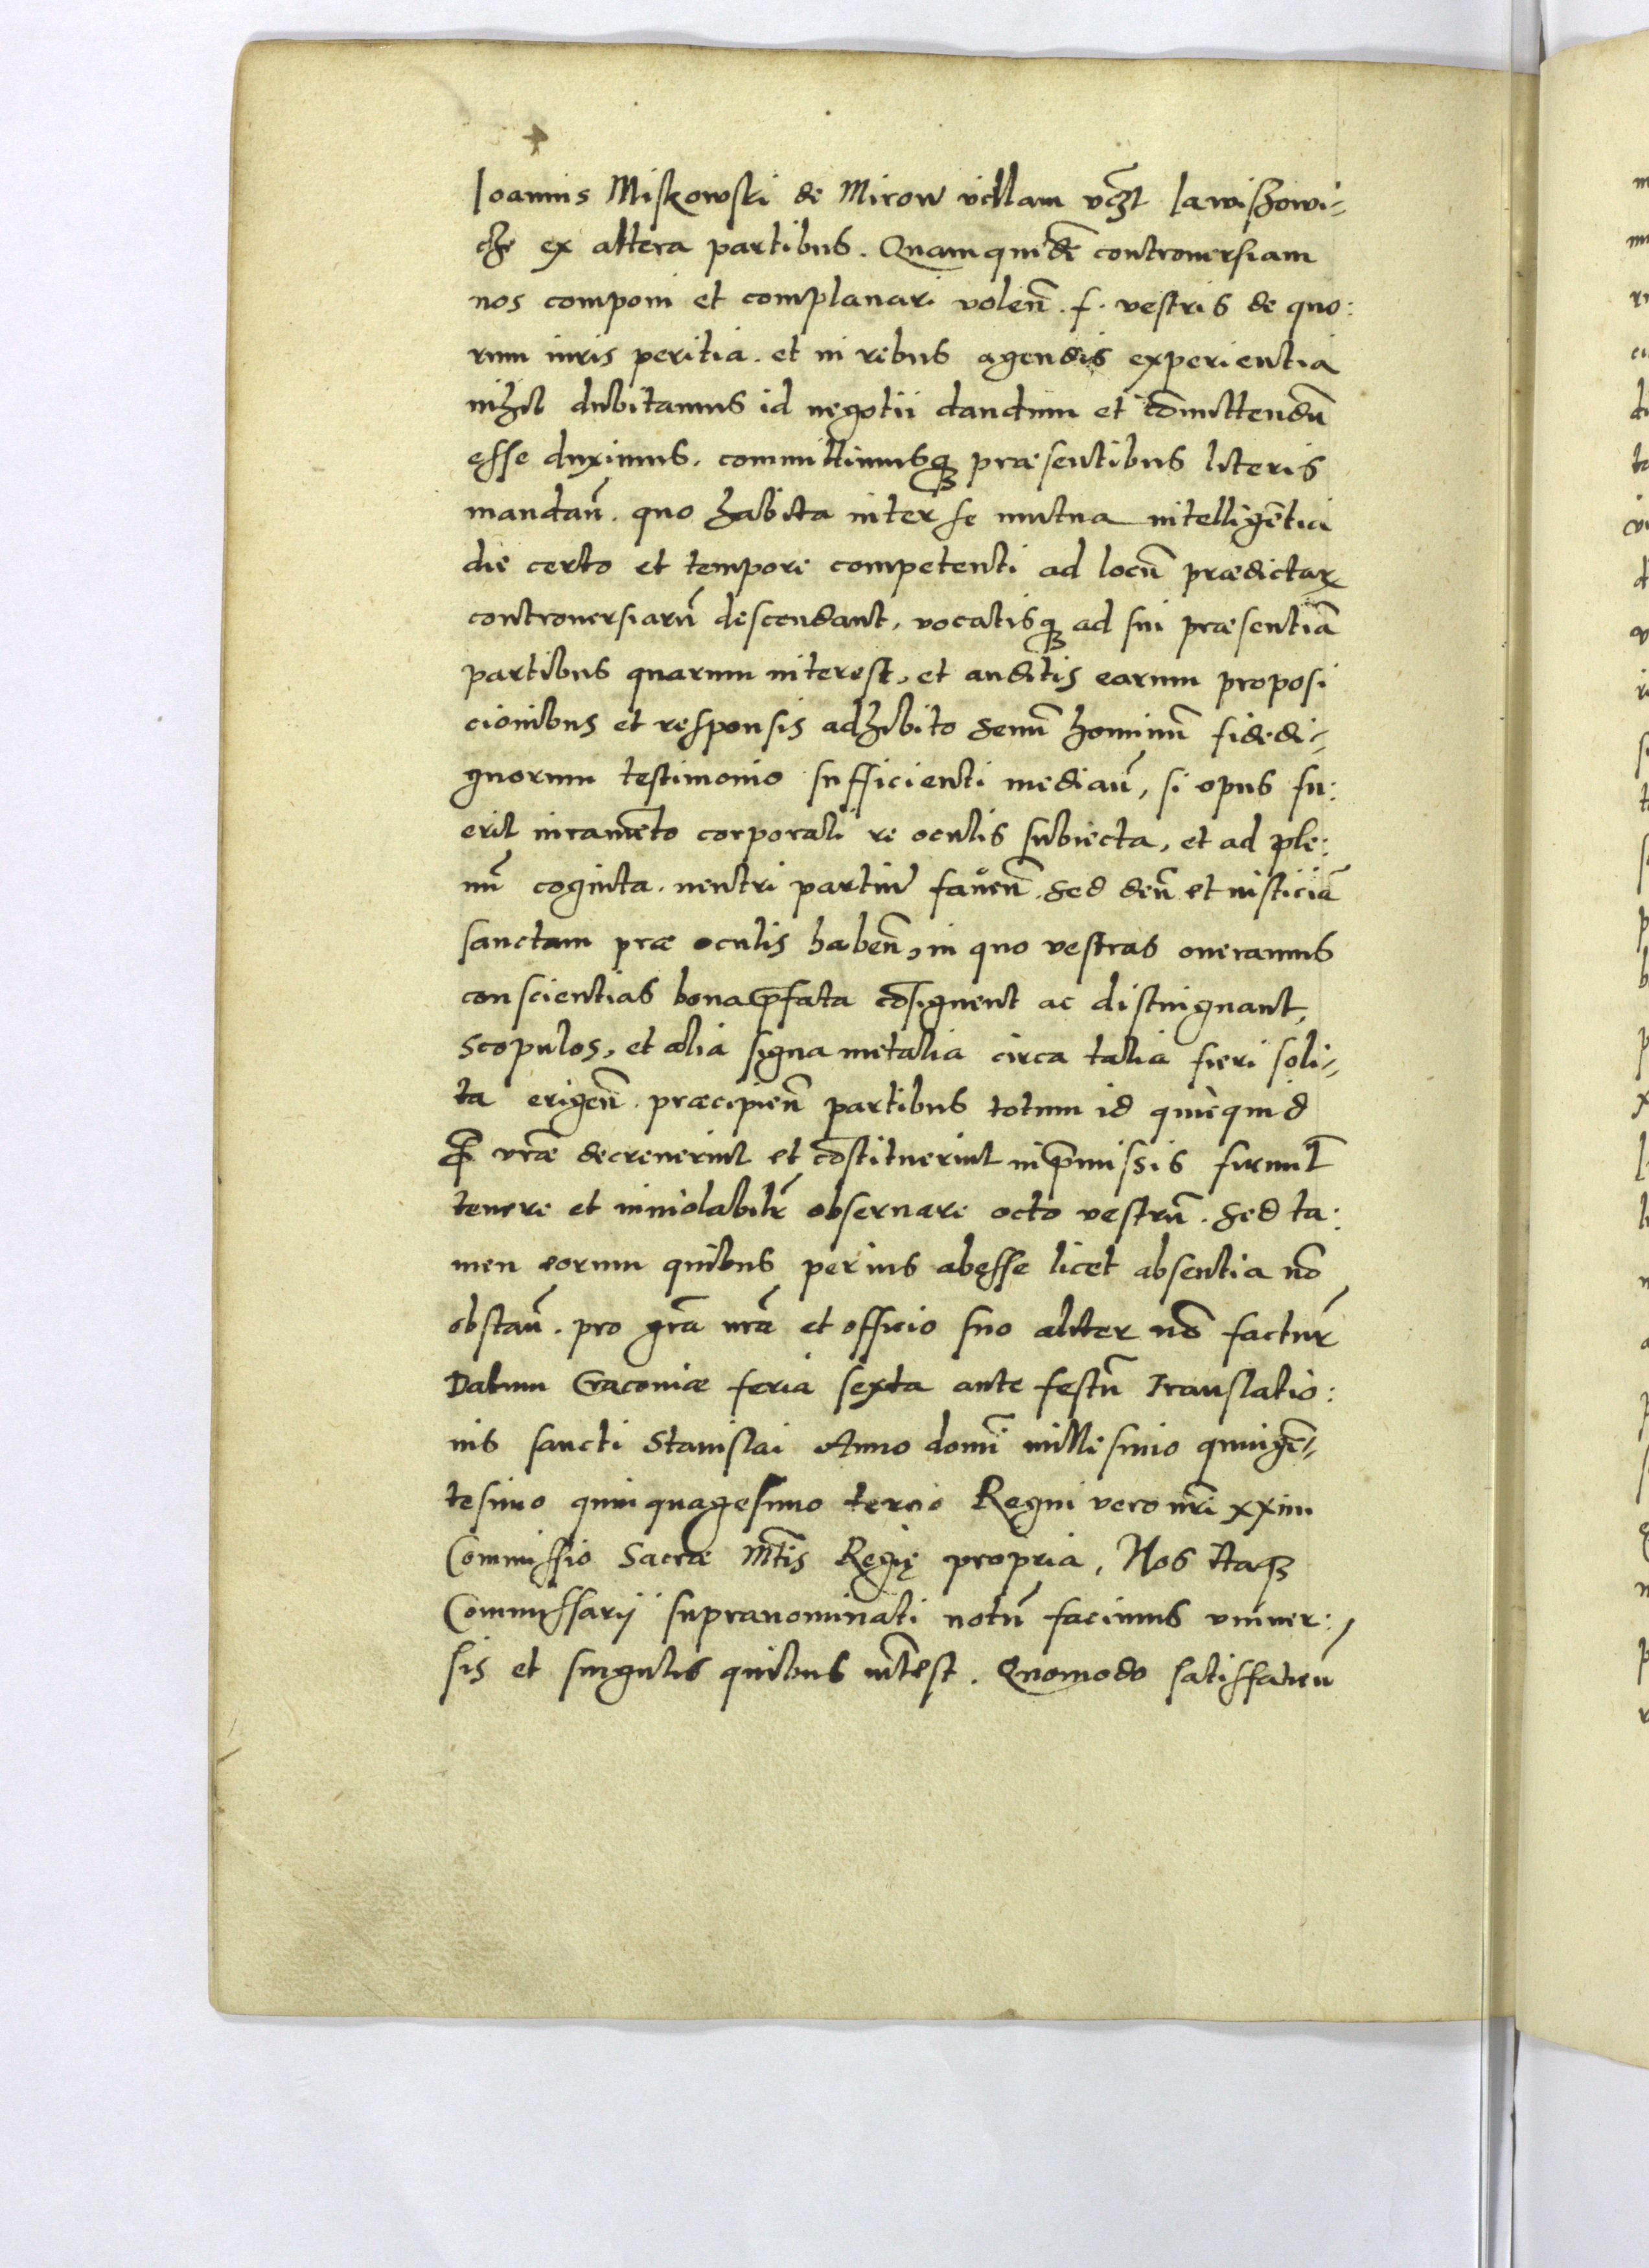 Ioannis Miskowski de Mirow villam vczt Iawiszowi-
cze ex altera partibus. Quamquidē controuersiam
nos componi et complanari volen̄. f. vestris de quo:
rum iuris peritia. et in rebus agendis experientia
nihil dubitamus id negotii dandum et cōmittendū
esse duximus. committimusq3 præsentibus literis
mandan̄. quo habita inter se mutua intelligētia
die certo et tempore competenti ad locū prædictarꝝ
controuersiarū descendant, vocatisq3 ad sui præsentiā
partibus quarum interest, et auditis earum proposi
cionibus et responsis adhibito senū hominū fidedi-
gnorum testimonio sufficienti median̄, si opus fu:
erit iuramēto corporali re oculis subiecta, et ad ple:
nū cognita. neutri partium fauen̄. sed deū et iusticiā
sanctam præ oculis haben̄, in quo vestras oneramus
conscientias bona p̄fata cōsignent ac distinguant,
scopulos, et alia signa metalia circa talia fieri soli-
ta erigen̄. præcipien̄ partibus totum id quicquid
f vræ decreuerint et cōstituerint in p̄missis firmit̄
tenere et inuiolabilr̄ obseruare octo vestrū. sed ta:
men eorum quibus per ius abesse licet absentia nō
obstan̄. pro gr̄a nr̄a et officio suo aliter nō factur̄
Datum Cracouiæ feria sexta ante festū Translatio:
nis sancti Stanislai Anno domī millesimo quingē-
tesimo quinquagesimo tercio Regni vero nr̄i xxiiii
Commissio Sacræ Mt̄is Regię propria, Nos Itaq3
Commissarij supranominati notū facimus vniuer:
sis et singulis quibus int̄est. Quomodo satisfacien̄